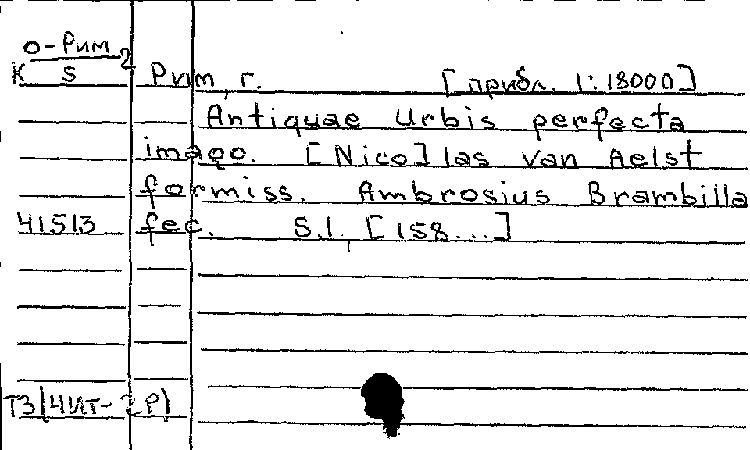 О-Рим 2
К 5 Рим, г. [прибл. 1:18000]
Antiquae Urbis perfecta
imago. [Nico]las van Aelst
formiss. Ambrosius Brambilla
41513 fec. S.l., [158...]
Т3(4ИТ-2Р)